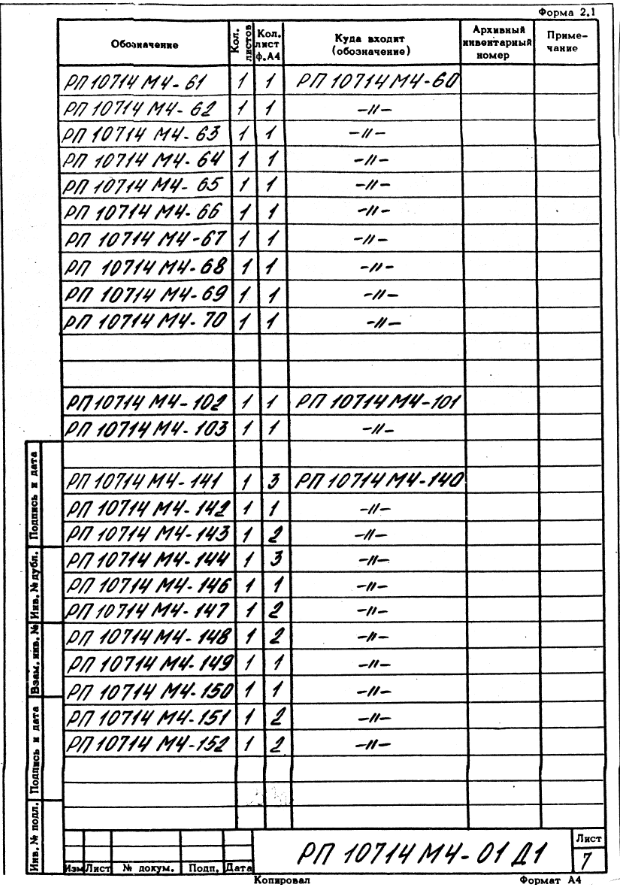 Форма 2.1
Обозначение Кол. листов Кол. лист ф.А4 Куда входит (обозначение) Архивный инвентарный номер Приме-чание
РП 10714 М4-61 1 1 РП 10714 М4-60
РП 10714 М4-62 1 1 -//-
РП 10714 М4-63 1 1 -//-
РП 10714 М4-64 1 1 -//-
РП 10714 М4-65 1 1 -//-
РП 10714 М4-66 1 1 -//-
РП 10714 М4-67 1 1 -//-
РП 10714 М4-68 1 1 -//-
РП 10714 М4-69 1 1 -//-
РП 10714 М4-70 1 1 -//-
РП 10714 М4-102 1 1 РП 10714 М4-101
РП 10714 М4-103 1 1 -//-
РП 10714 М4-141 1 3 РП 10714 М4-140
РП 10714 М4-142 1 1 -//-
РП 10714 М4-143 1 2 -//-
РП 10714 М4-144 1 3 -//-
РП 10714 М4-146 1 1 -//-
РП 10714 М4-147 1 2 -//-
РП 10714 М4-148 1 2 -//-
РП 10714 М4-149 1 1 -//-
РП 10714 М4-150 1 1 -//-
РП 10714 М4-151 1 2 -//-
РП 10714 М4-152 1 2 -//-
Подпись и дата
Инв. № дубл.
Взам. инв. №
Подпись и дата
Инв. № подл.
Изм Лист № докум. Подп. Дата
РП 10714 М4-01 Д1
Лист
7
Копировал Формат А4